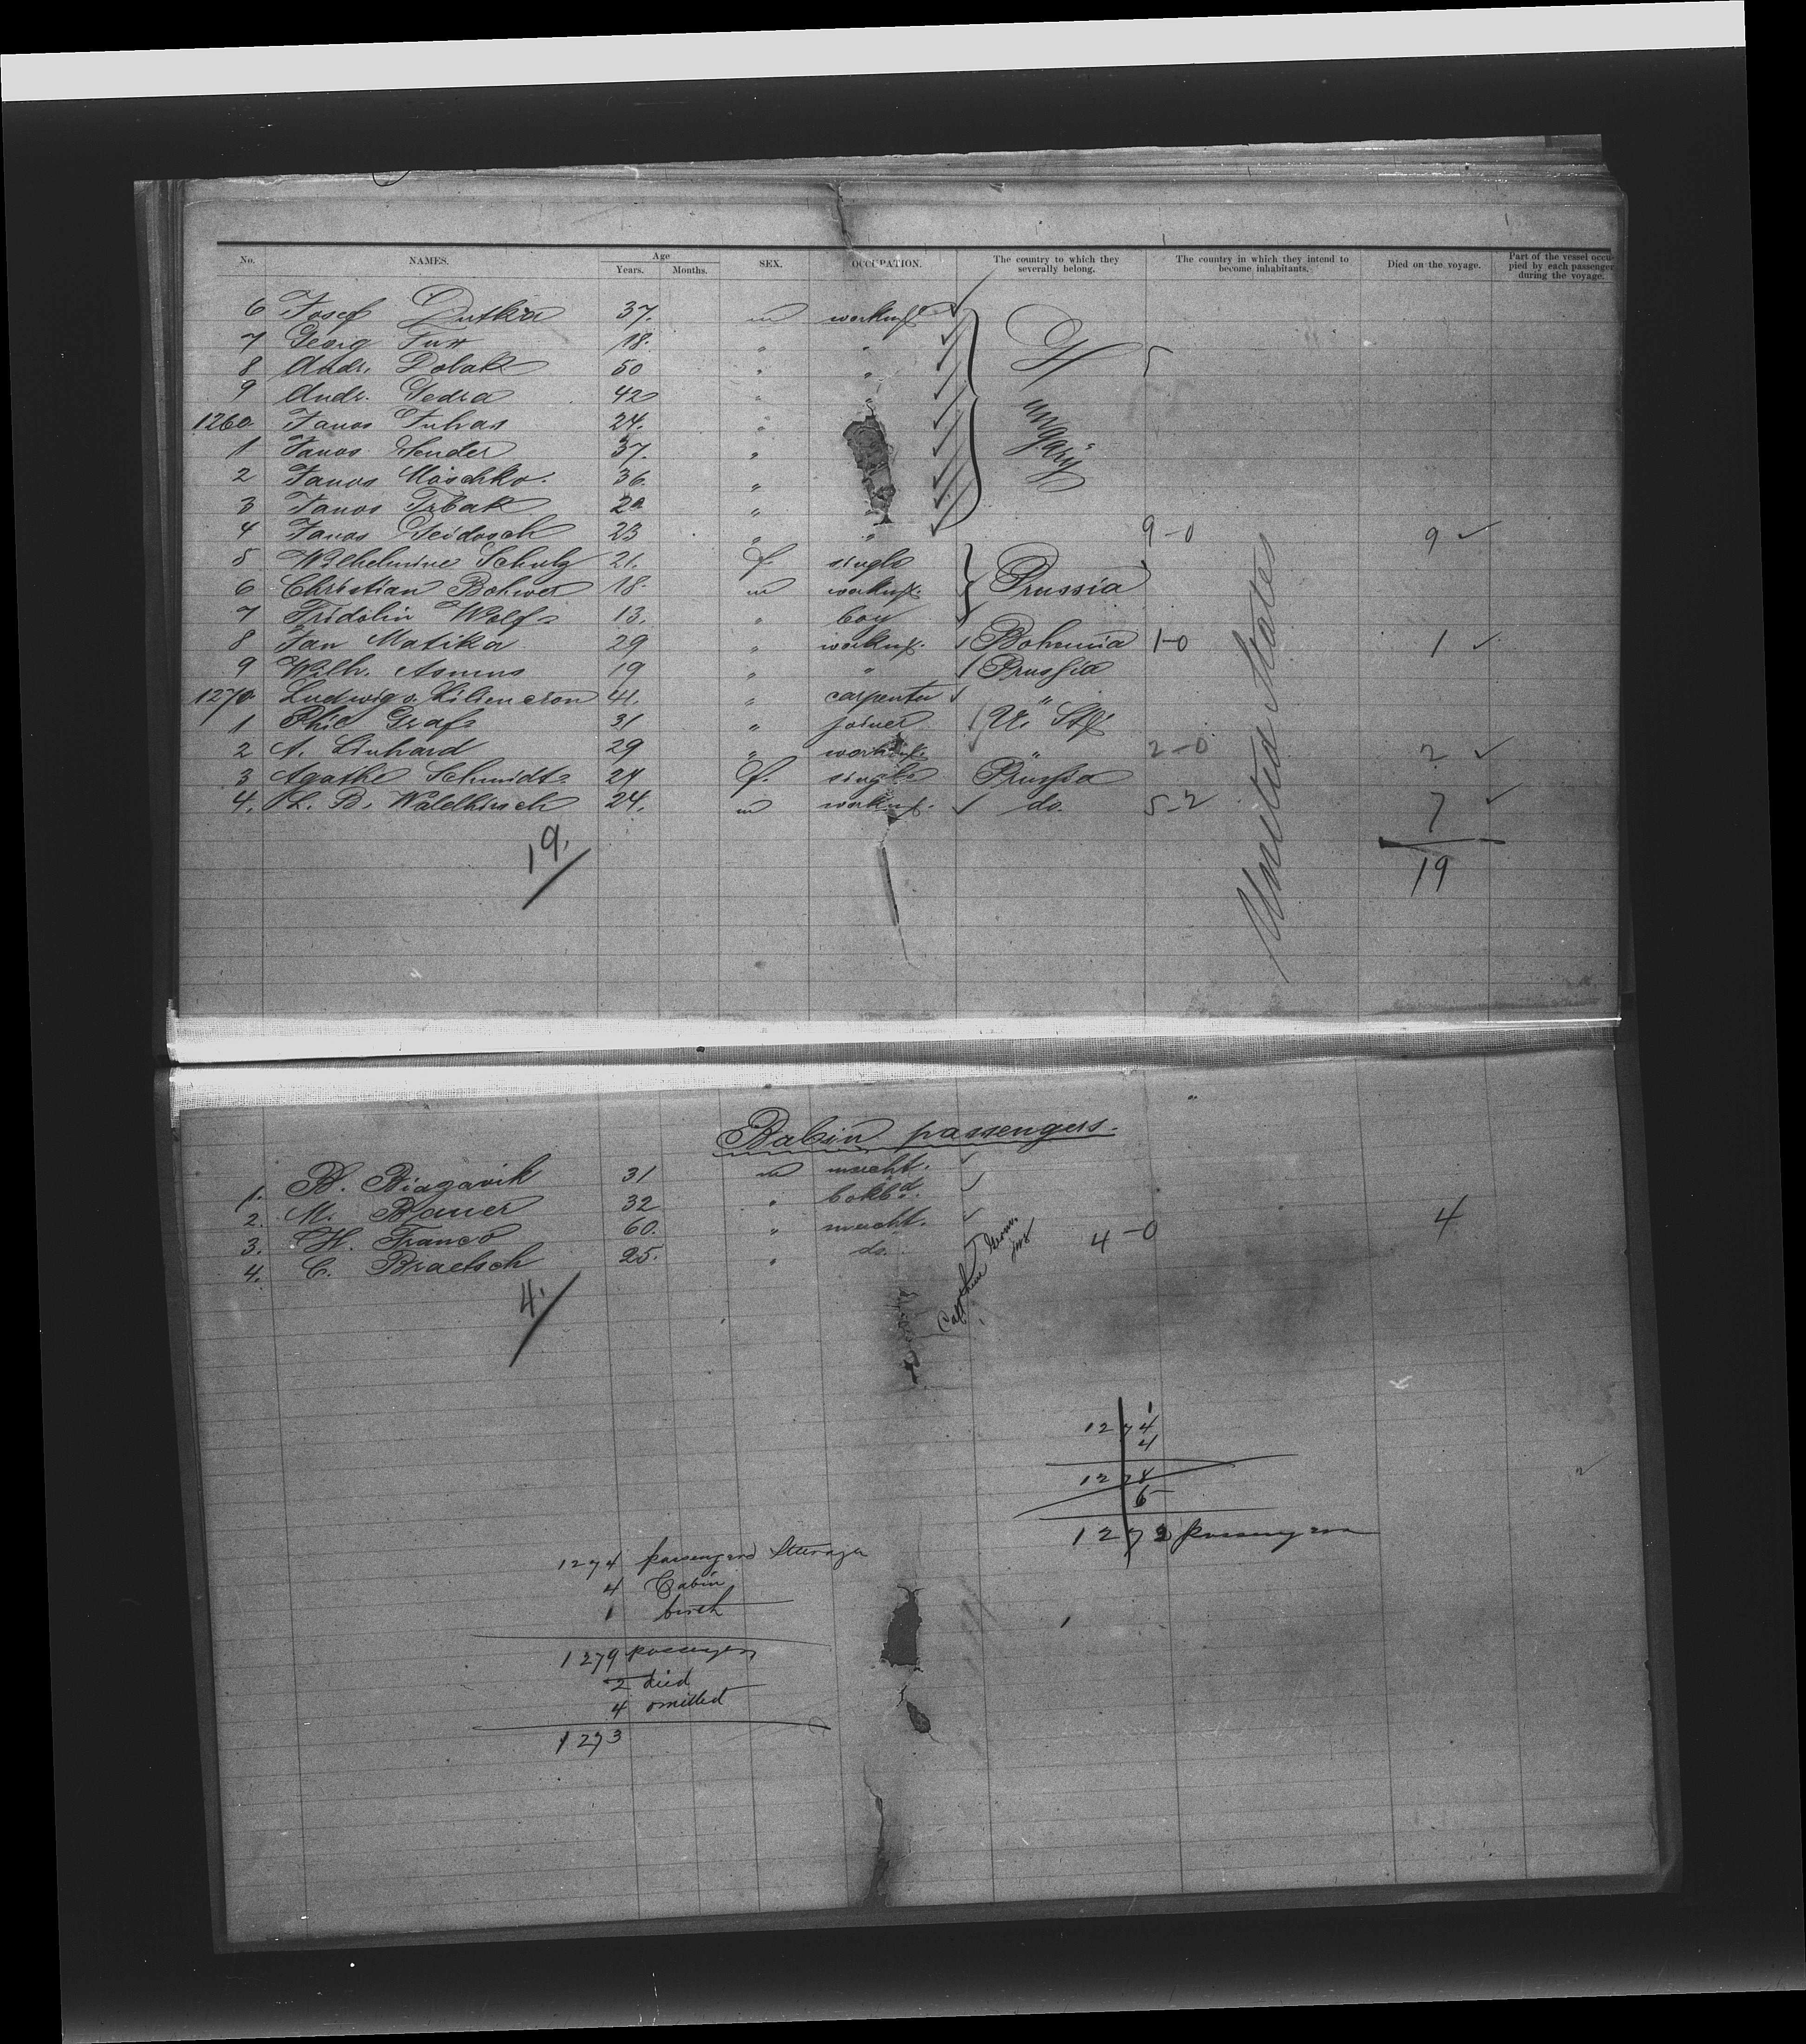 No. NAMES. Age Years. Months. SEX. OCCUPATION. The country to which they severally belong. The country in which they intend to become inhabitants. Died on the voyage. Part of the vessel occupied by each passenger during the voyage.
6 Josef Dutka 37. m
7 Georg 18. "
8 Andr. Dobak 50 " "
9 Andr. Fedra 42 " "
1260 Janos Juhas 24. "
1 Janos Sender 37. "
2 Janos Moschko. 36. "
3 Janos Trbak "
4 Janos 23 " " 9-0 9
Hungary
5 Wilhelmine Schulz 21. f. single
6 Christian 18. m Prussia
7 Fridolin Wolf 13. " boy
8 Jan Matika 29 " Bohemia 1-0 1
9 Wilh. Asmus 19 " " Prussia
1270. Ludwig v. Liliencron 41. " carpenter "
1 Phil Graf 31 " joiner U. St.
2 A. Linhard 29 " " 2-0 2
3 Agathe Schmidt 24 f. single Prussia
4. L. B. Waldkirsch 24. m do. 5-2 7
United States
19. 19
Cabin passengers.
1. B. Biagavik 31 m mercht.
2. M. Blauer 32 "
3. H. Franco 60. " mercht.
4. C. Braetsch 25. " do. 4-0 4
4.
1274
4
1278
6
127 passengers
1274 passengers Steerage
4 Cabin
1 birth
1279 passengers
2 died
4 omitted
1273